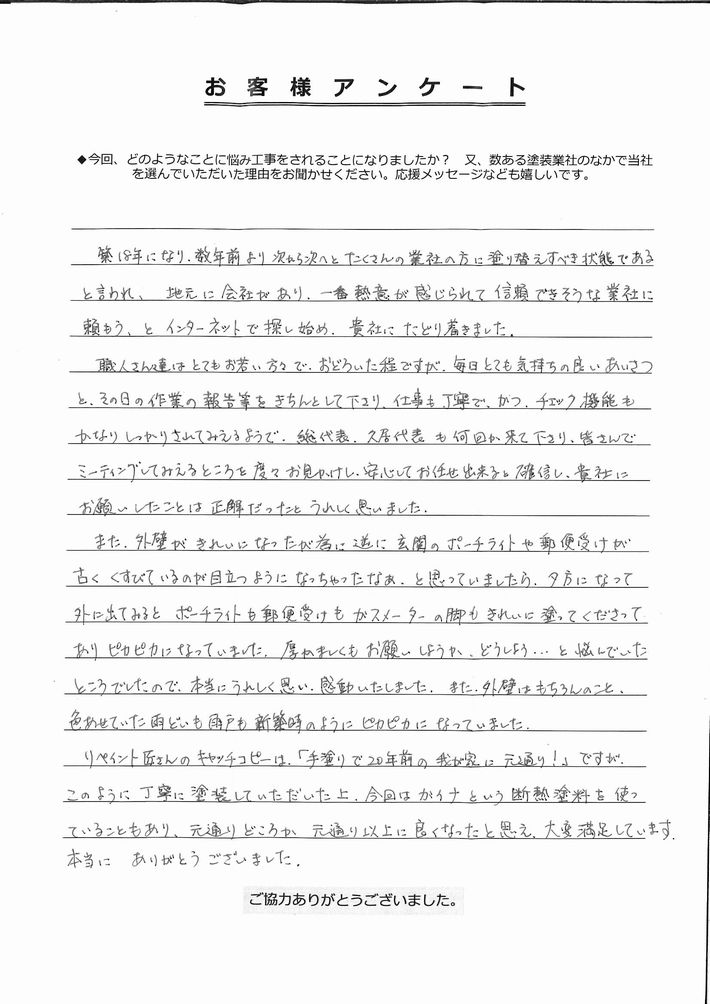 お客様アンケート
◆今回、どのようなことに悩み工事をされることになりましたか？　又、数ある塗装業社のなかで当社
を選んでいただいた理由をお聞かせください。応援メッセージなども嬉しいです。
築18年になり、数年前より次から次へとたくさんの業社の方に塗り替えすべき状態である
と言われ、地元に会社があり、一番熱意が感じられて信頼できそうな業社に
頼もう、とインターネットで探し始め、貴社にたどり着きました。
職人さん達はとてもお若い方々で、おどろいた程ですが、毎日とても気持ちの良いあいさつ
と、その日の作業の報告等をきちんとして下さり、仕事も丁寧で、かつ、チェック機能も
かなりしっかりされてみえるようで、総代表、久居代表も何回か来て下さり、皆さんで
ミーティングしてみえるところを度々お見かけし、安心してお任せ出来ると確信し、貴社に
お願いしたことは正解だったとうれしく思いました。
また、外壁がきれいになったが為に逆に玄関のポーチライトや郵便受けが
古くくすびているのが目立つようになっちゃったなぁ、と思っていましたら、夕方になって
外に出てみるとポーチライトも郵便受けもガスメーターの脚もきれいに塗ってくださって
ありピカピカになっていました。厚かましくもお願いしようか、どうしよう…と悩んでいた
ところでしたので、本当にうれしく思い、感動いたしました。また、外壁はもちろんのこと、
色あせていた雨どいも雨戸も新築時のようにピカピカになっていました。
リペイント匠さんのキャッチコピーは、「手塗りで20年前の我が家に元通り!」ですが、
このように丁寧に塗装していただいた上、今回はガイナという断熱塗料を使っ
ていることもあり、元通りどころか元通り以上に良くなったと思え、大変満足しています。
本当に ありがとうございました。
ご協力ありがとうございました。